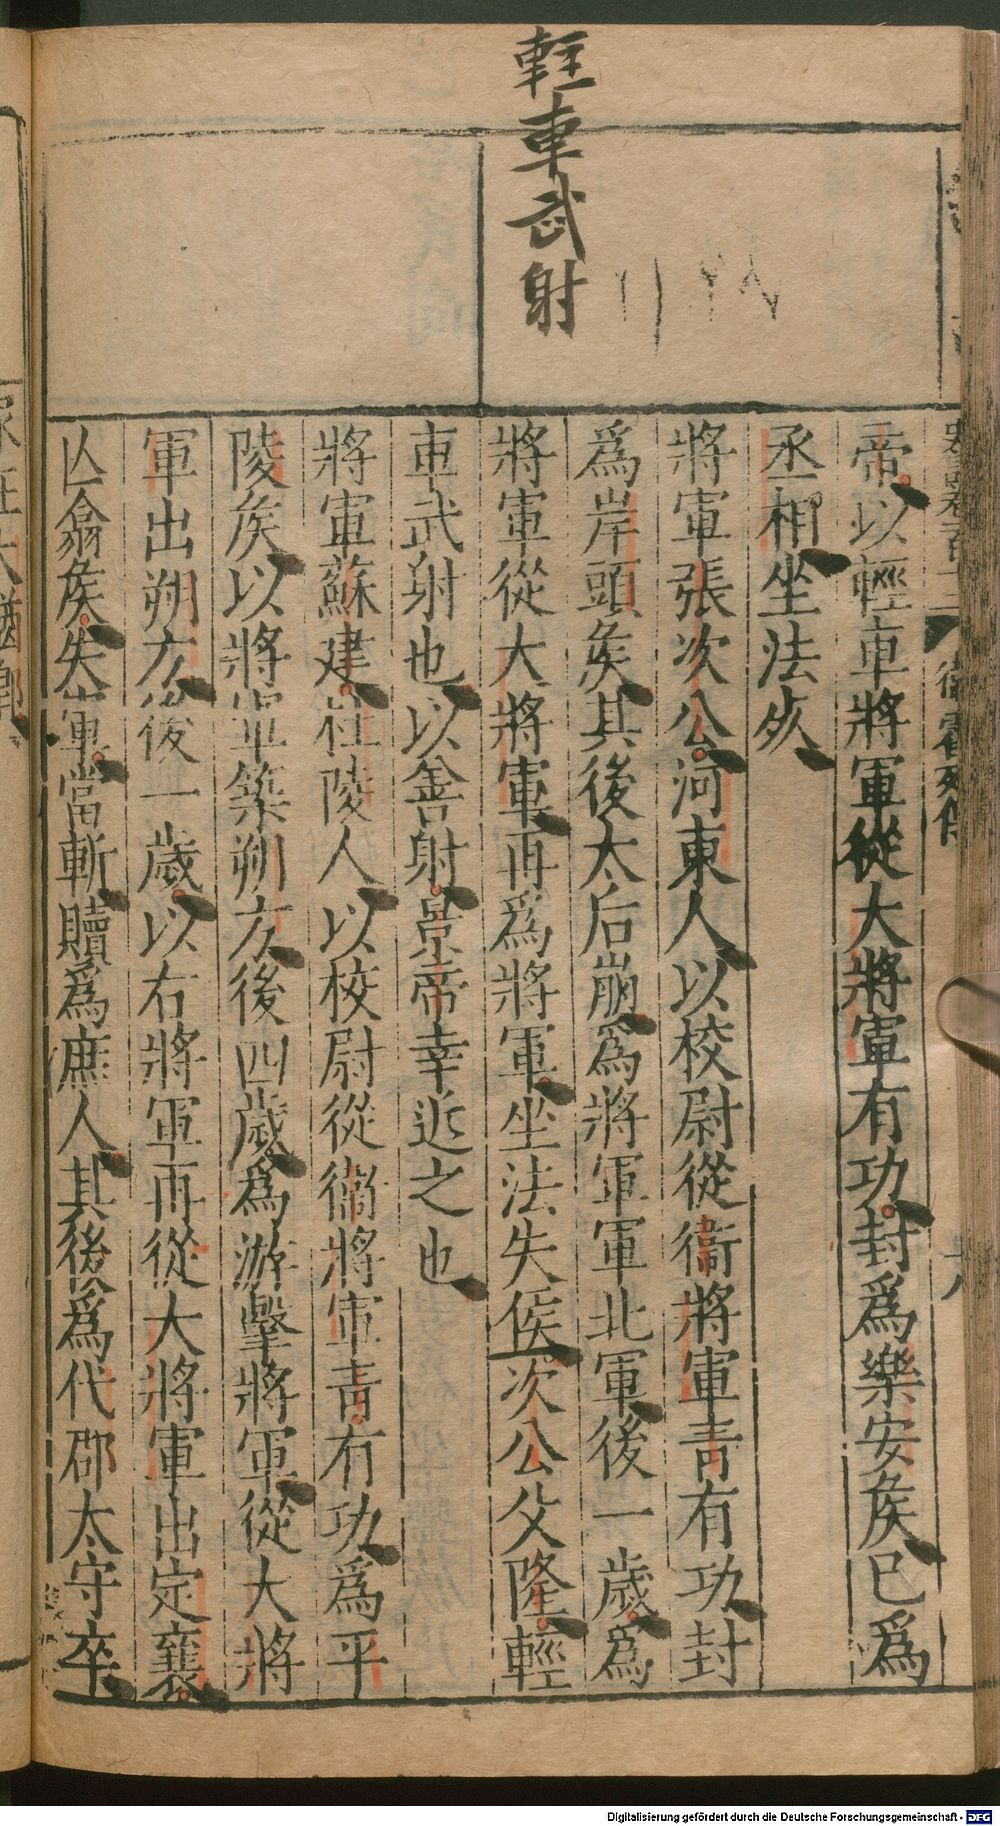 軽車武射
帝以輕車將軍從大將軍有功封爲樂安矦已爲
丞相坐法死
將軍張次公河東人以校尉從衞將軍青有功封
爲岸頭矦其後太后崩爲將軍軍北軍後一歲爲
將軍從大將軍再爲將軍坐法失侯次公父隆輕
車武射也以善射景帝幸近之也
將軍蘇建杜陵人以校尉從衞將軍青有功爲平
陵矦以將軍築朔方後四歲爲游擊將軍從大將
軍出朔方後一歲以右將軍再從大將軍出定襄
亾翕矦失軍當斬贖爲庶人其後爲代郡太守卒
Digitalisierung gefördert durch die Deutsche Forschungsgemeinschaft - DFG